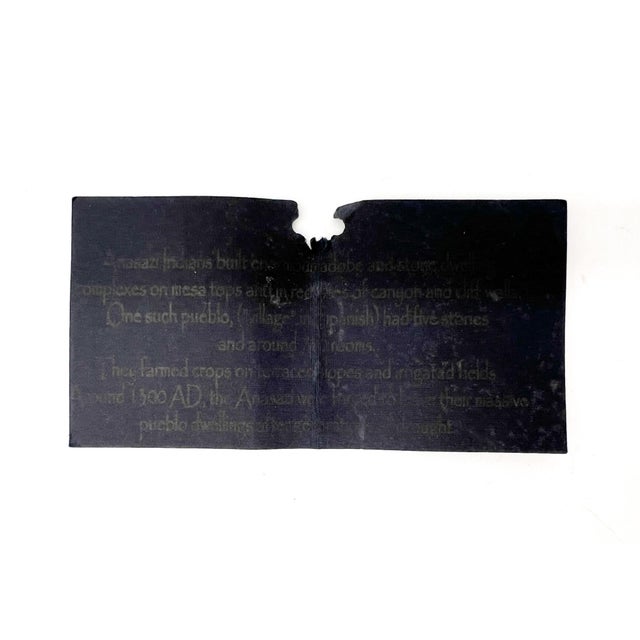 Anasazi Indians built enormous adobe and stone
complexes on mesa tops and in recesses of canyon and cliff walls.
One such pueblo, ("village" in Spanish) had five stories
and around rooms.
They farmed crops on terraced slopes and irrigated fields.
Around 1300 AD, the Anasazi were forced to leave their massive
pueblo dwellings after drought.